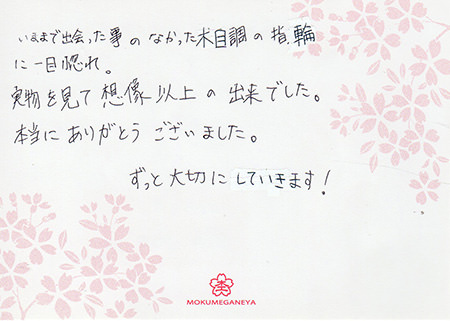 いままで出会った事のなかった木目調の指輪
に一目惚れ。
実物を見て想像以上の出来でした。
本当にありがとうございました。
ずっと大切にしていきます!
MOKUMEGANEYA